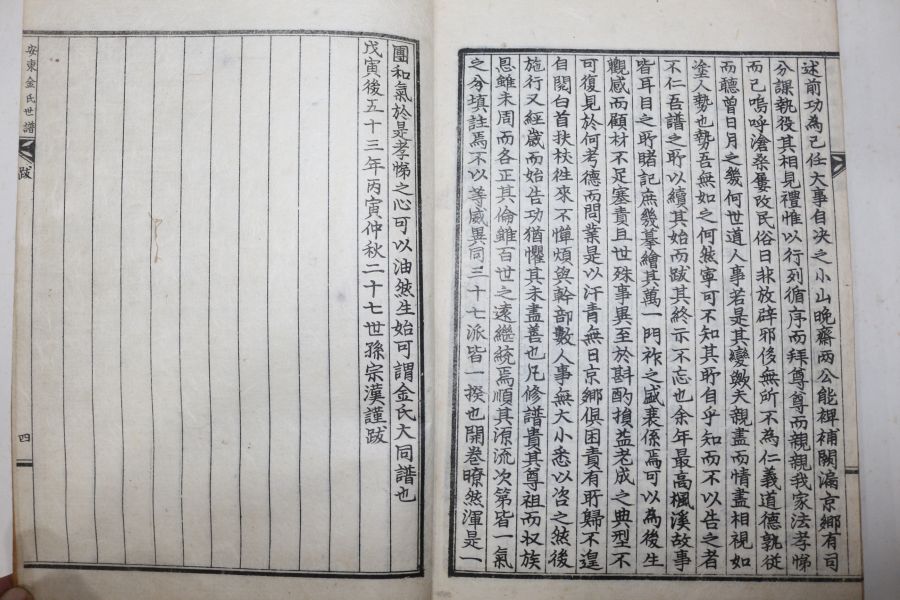 述前功為己任大事自决之小山晚齋兩公能裨補闕漏京鄉有司
分課執役其相見禮惟以行列循序而拜尊尊而親親我家法孝悌
而已嗚呼滄桑屢改民俗日非放辟邪侈無所不為仁義道德孰從
而聽曾日月之幾何世道人事若是其變歟夫親盡而情盡相視如
塗人勢也勢吾無如之何然寧可不知其所自乎知而不以告之者
不仁吾譜之所以續其始而跋其終示不忘也余年最高楓溪故事
皆耳目之所睹記庶幾摹繪其萬一門祚之盛衰係焉可以為後生
觀感而顧材不足塞責且世殊事異至於斟酌損益老成之典型不
可復見於何考德而問業是以汗青無日京鄉俱困責有所歸不遑
自閱白首扶杖徃來不憚煩與幹部數人事無大小悉以咨之然後
施行又經歲而始告功猶懼其未盡善也凡修譜貴其尊祖而収族
恩雖未周而各正其倫雖百世之遠繼統焉順其源流次第皆一氣
之分填註焉不以等威異同三十七派皆一揆也開卷瞭然渾是一
團和氣於是孝悌之心可以油然生始可謂金氏大同譜也
戊寅後五十三年丙寅仲秋二十七世孫宗漢謹跋
安東金氏世譜
跋
四